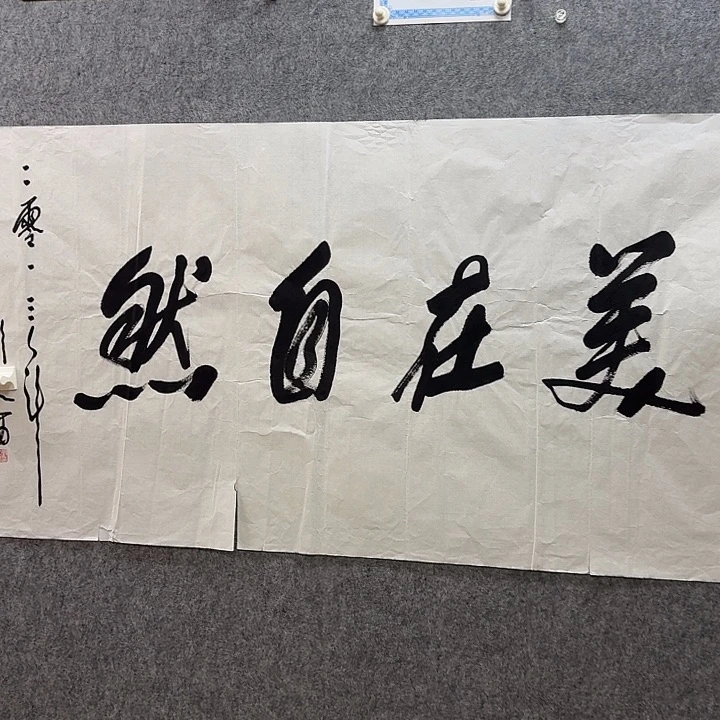 美在自然
二零一三年